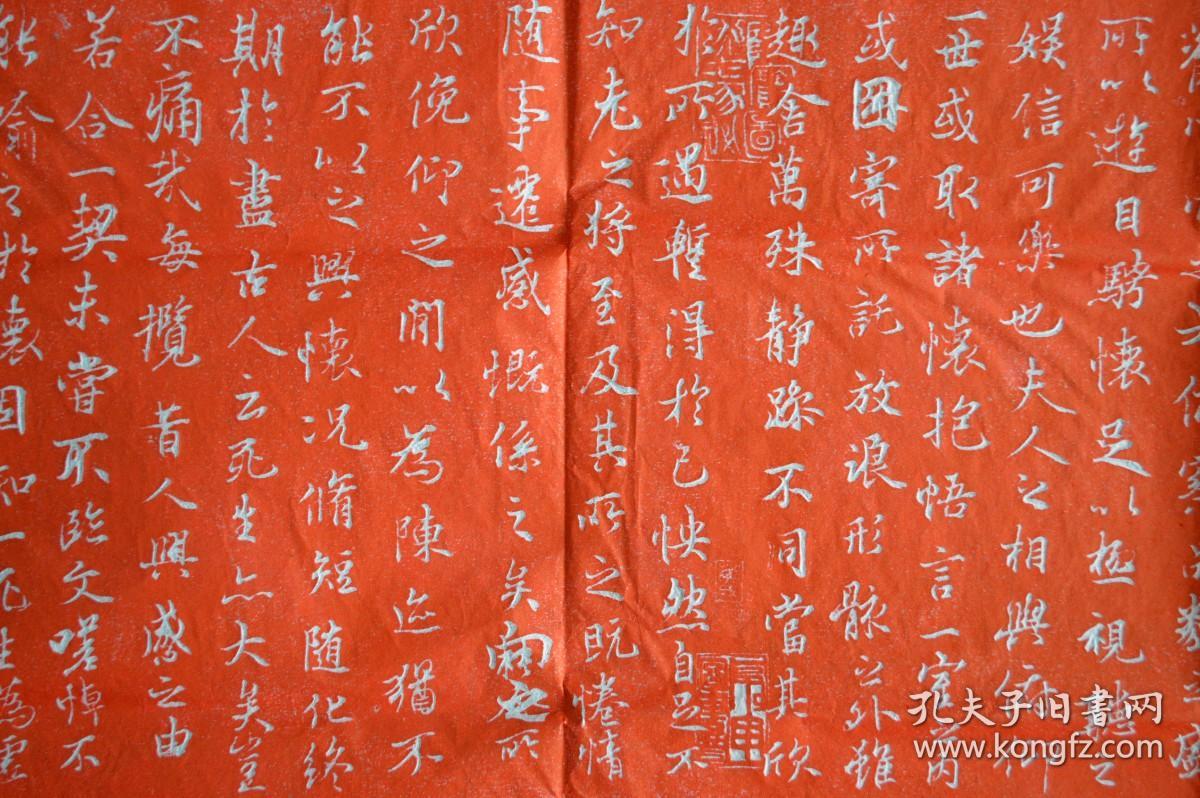 所以遊目騁懷足以極視聽之
娛信可樂也夫人之相與俯仰
一世或取諸懷抱悟言一室之內
或因寄所託放浪形骸之外雖
趣舍萬殊靜躁不同當其欣
於所遇暫得於己怏然自足不
知老之將至及其所之既惓情
隨事遷感慨係之矣向之所
欣俛仰之閒以為陳迹猶不
能不以之興懷况脩短隨化終
期於盡古人云死生亦大矣豈
不痛哉每攬昔人興感之由
若合一契未嘗不臨文嗟悼不
能喻之於懷固知一死生為虛
孔夫子旧书网
www.kongfz.com